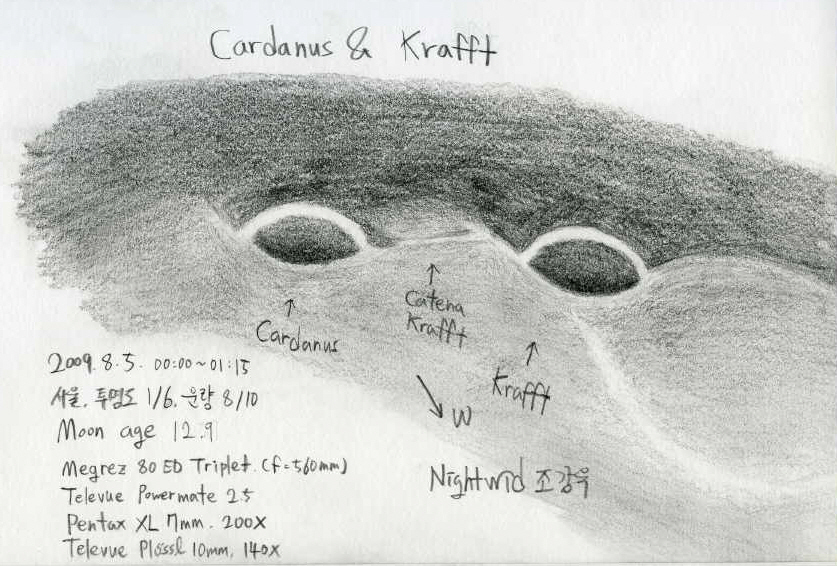 Cardanus & Krafft
Cardanus
Catena
Krafft
Krafft
W
2009. 8. 5. 00:00~01:15
서울, 투명도 1/6, 운량 8/10
Moon age 12.9
Megrez 80 ED Triplet. (f=560mm)
Televue Powermate 2.5
Pentax XL 7mm. 200X
Televue Plössl 10mm, 140X
Nightwid 조강욱